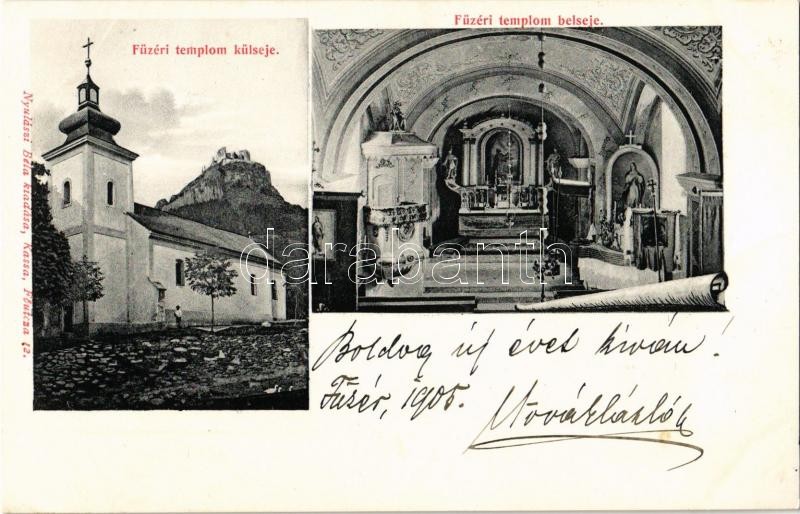 Füzéri templom külseje.
Füzéri templom belseje.
Nyulászi Béla kiadása, Kassa, Főutcza 12.
darabanth
Boldog új évet kíván!
Füzér, 1905.